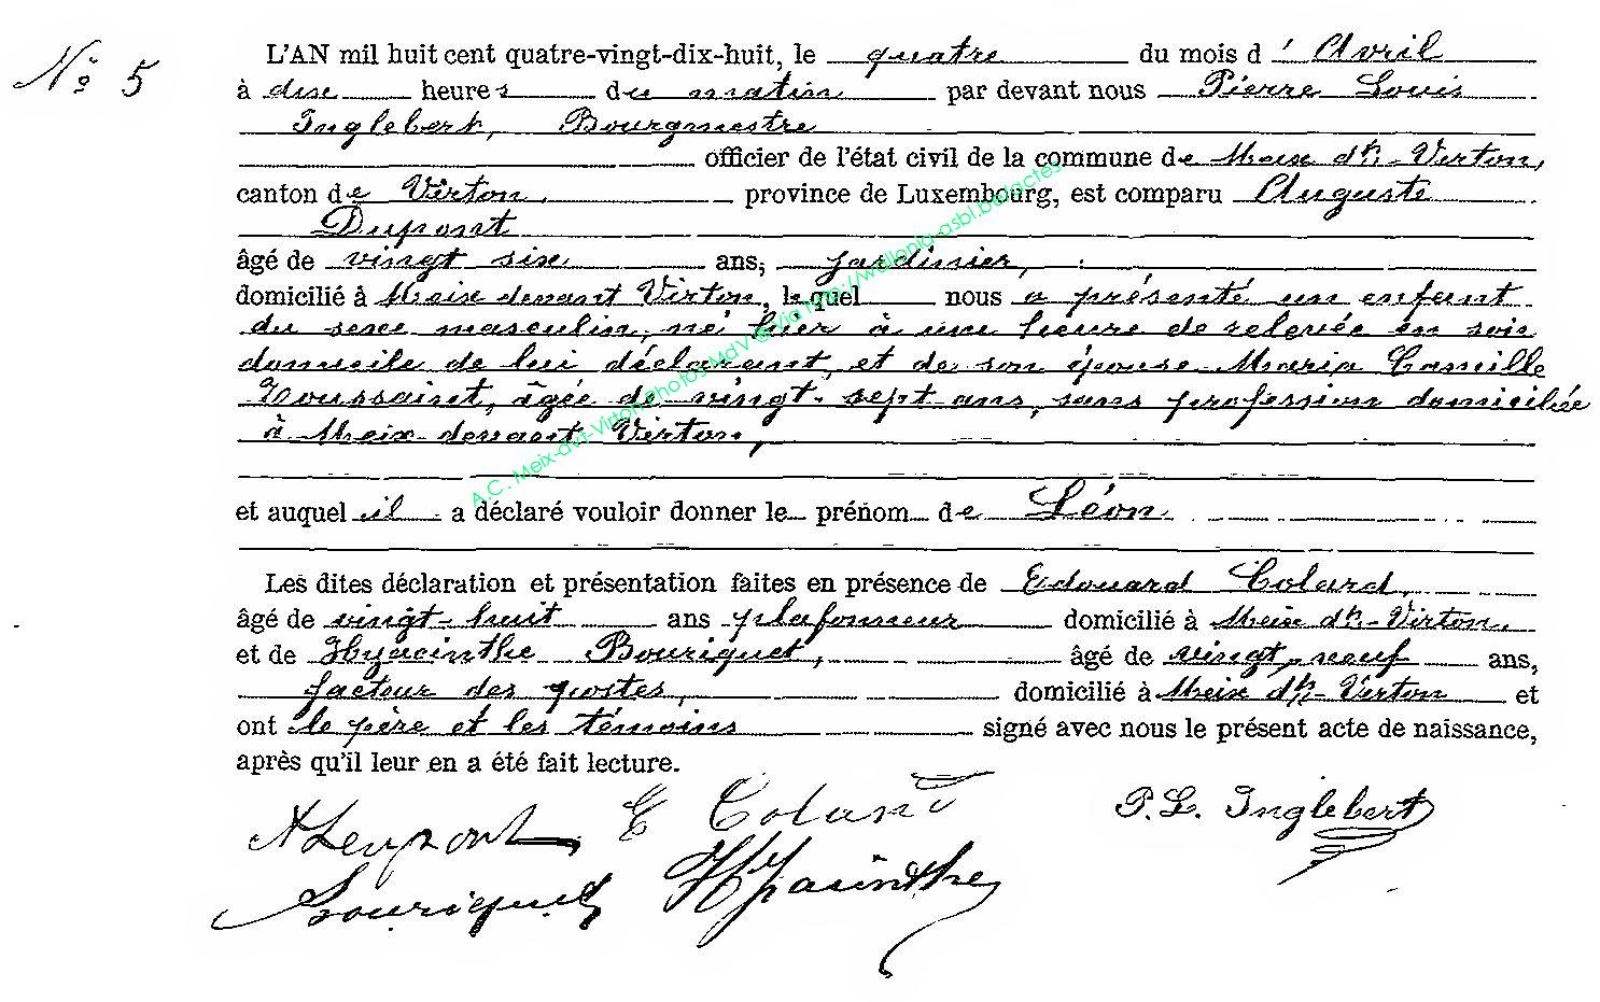 N° 5
L'AN mil huit cent quatre-vingt-dix-huit, le quatre du mois d'Avril
à dix heures du matin par devant nous Pierre Louis
Inglebert, Bourgmestre
officier de l'état civil de la commune de Meix dt-Virton,
canton de Virton, province de Luxembourg, est comparu Auguste
Dupont
âgé de vingt six ans, jardinier,
domicilié à Meix devant Virton, lequel nous a présenté un enfant
du sexe masculin, né hier à une heure de relevée en son
domicile de lui déclarant, et de son épouse Maria Camille
Toussaint, âgée de vingt-sept ans, sans profession domiciliée
à Meix-devant Virton,
et auquel il a déclaré vouloir donner le prénom de Léon
Les dites déclaration et présentation faites en présence de Edouard Colard,
âgé de vingt-huit ans plafonneur domicilié à Meix dt-Virton,
et de Hyacinthe Bouriquet, âgé de vingt-neuf ans,
facteur des postes, domicilié à Meix dt-Virton et
ont le père et les témoins signé avec nous le présent acte de naissance,
après qu'il leur en a été fait lecture.
ADupont E Colard P. L. Inglebert
Bouriquet Hyacinthe
A.C. Meix-dvt-Virton Photos MdV © Via http://wallonia-asbl.be/actes